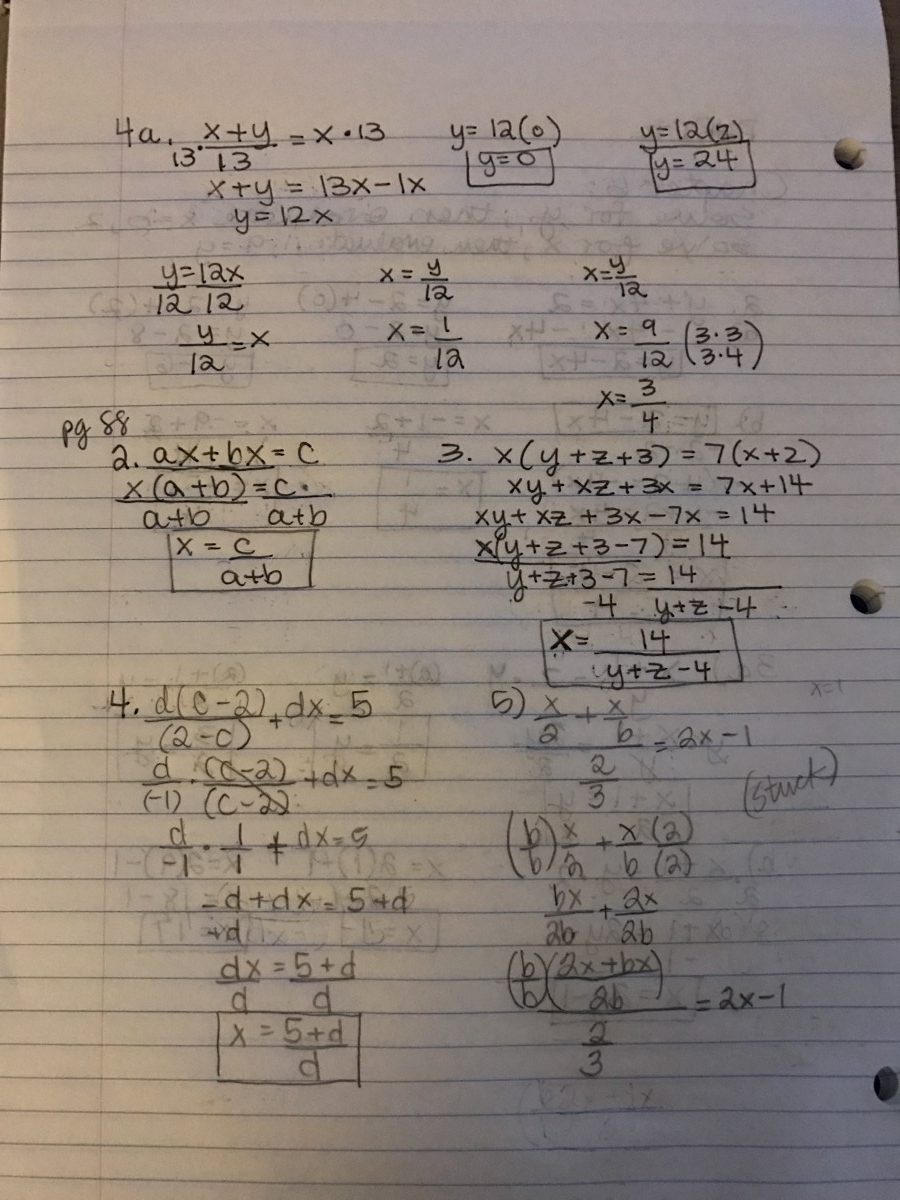 4a. 13· (x+y)/13 = x·13
x+y = 13x-1x
y=12x
y=12(0)
y=0
y=12(2)
y=24
y=12x
12 12
y/12 = x
x = y/12
x = 1/12
x = y/12
x = 9/12 (3·3/3·4)
x = 3/4
pg 88
2. ax+bx = c
x(a+b) = c·
a+b a+b
x = c/(a+b)
3. x(y+z+3) = 7(x+2)
xy + xz + 3x = 7x+14
xy + xz + 3x - 7x = 14
x(y+z+3-7) = 14
y+z+3-7 = 14
-4 y+z-4
x = 14/(y+z-4)
4. d(c-2)/(2-c) + dx = 5
d/(-1) · (c-2)/(c-2) + dx = 5
d/-1 · 1/1 + dx = 5
= d+dx = 5+d
+d
dx = 5+d
d d
x = (5+d)/d
5) x/2 + x/b = 2x-1
2/3
(stuck)
(b/b) x/2 + x/b (2)/(2)
bx/2b + 2x/2b
(b/b)((2x+bx)/2b) = 2x-1
2/3